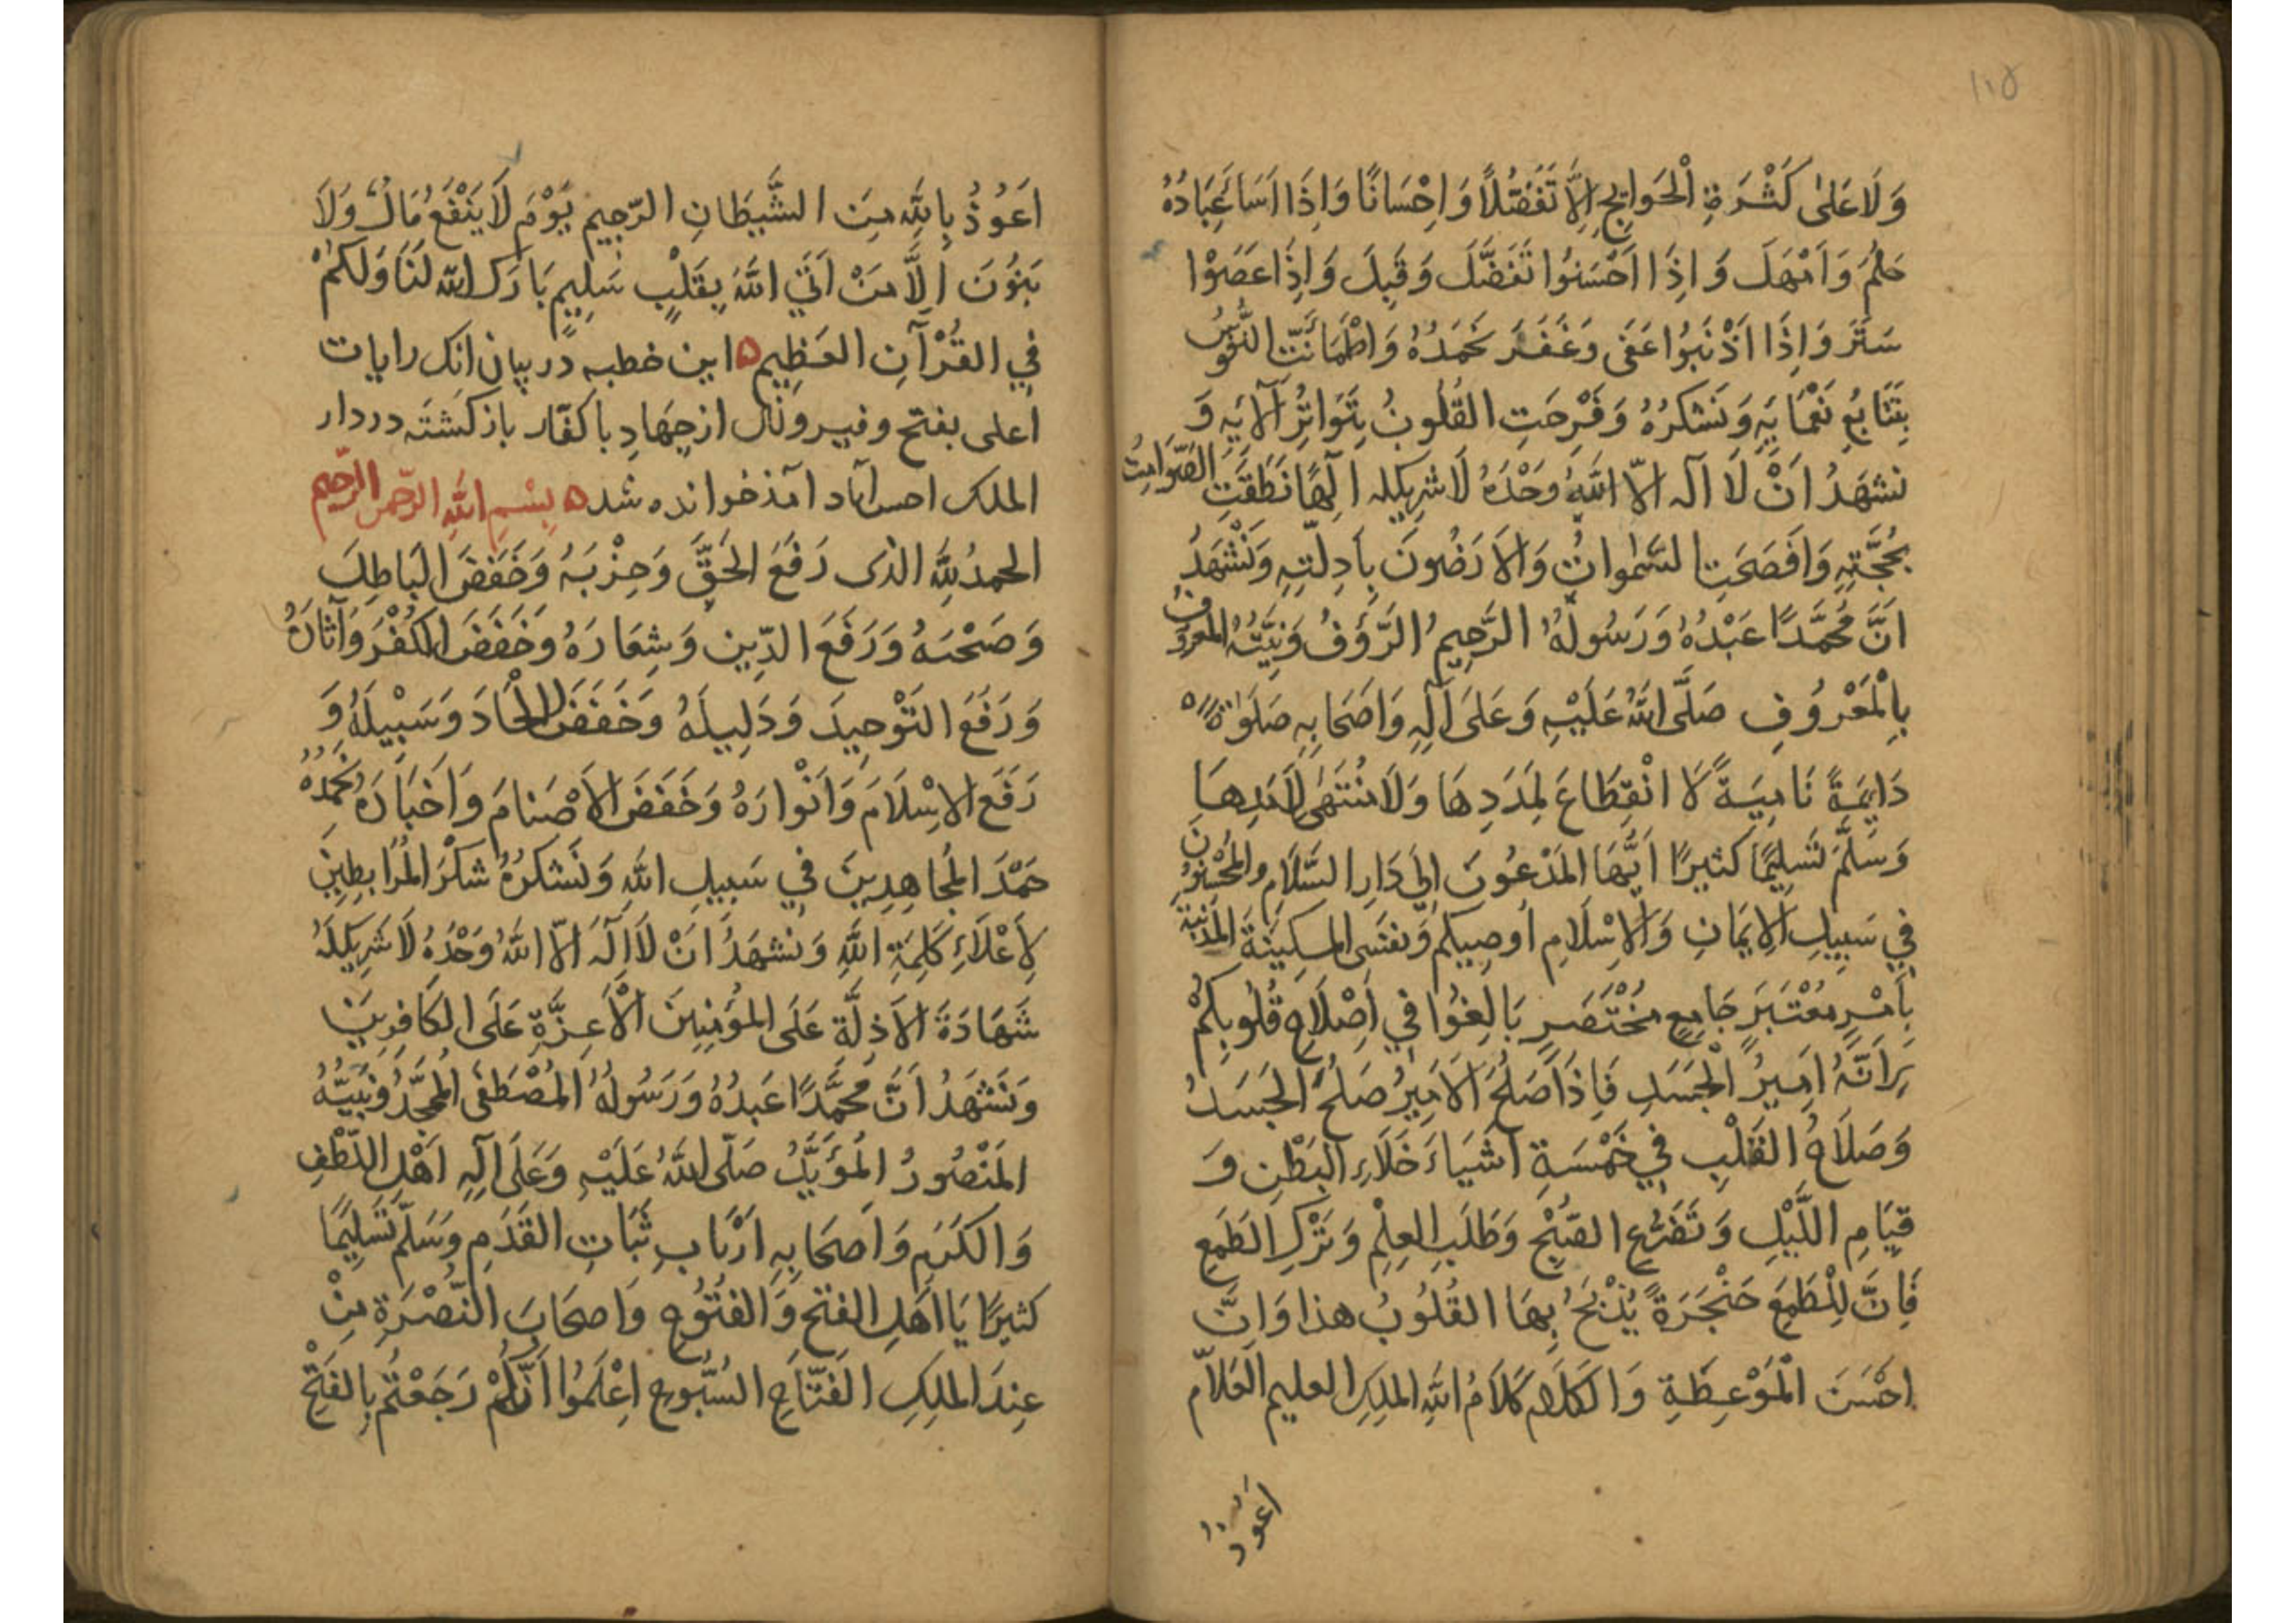 ١١٥
وَلَا عَلىٰ كَثْرَةِ الْحَوَائِجِ اِلَّا تَفَضُّلًا وَاِحْسَانًا وَاِذَا اَسَاءَ عِبَادُهُ
حَلُمَ وَاَمْهَلَ وَاِذَا اَحْسَنُوا تَفَضَّلَ وَقَبِلَ وَاِذَا عَصَوْا
سَتَرَ وَاِذَا اَذْنَبُوا عَفَى وَغَفَرَ نَحْمَدُهُ وَاطْمَأَنَّتِ النُّفُوسُ
بِتَتَابُعِ نَعْمَايِهِ وَنَشكُرُهُ وَفَرِحَتِ القُلُوبُ بِتَوَاتُرِ آلَايِهِ وَ
نشهَدُ اَنْ لَا آلهَ اِلاّ اللّٰهُ وَحْدَهُ لَا شَرِيكَ لَهُ اِلٰهًا نَطَقَتِ الصَّوَامِتُ
بِحُجَّتِهِ وَاَفصَحَتِ السَّمٰواتُ وَالاَرَضُونَ بِاَدِلَّتِهِ وَنَشْهَدُ
اَنَّ مُحَمَّدًا عَبْدُهُ وَرَسُولُهُ الرَّحِيمُ الرَّؤُفُ وَنَبِيُّهُ المَعرُوفُ
بِالْمَعْرُوفِ صَلَّى اللّٰهُ عَلَيْهِ وَعَلَى آلِهِ وَاَصْحَابِهِ صَلَوٰةً
دَايِمَةً نَامِيَةً لَا انْقِطَاعَ لِمَدَدِهَا وَلَا مُنْتَهٰى لِاَمَدِهَا
وَسَلَّمَ تَسْلِيمًا كَثيرًا اَيُّهَا المَدْعُوُّنَ اِلَى دَارِ السَّلَامِ والمُحْسِنُونَ
فِي سَبِيلِ الاِيمَانِ وَالاِسْلَامِ اُوصِيكُم وَنفسَى المسكِينَةَ المُذنِبَةَ
بِاَمْرٍ مُعْتَبَرٍ جَامِعٍ مُخْتَصَرٍ بَالِغُوا فِي اِصْلَاحِ قُلُوبِكُمْ
فَاِنَّهُ اَمِيرُ الْجَسَدِ فَاِذَا صَلُحَ الاَمِيرُ صَلُحَ الجَسَدُ
وَصَلَاحُ القَلْبِ فِي خَمْسَةِ اَشْيَاءَ خَلَاءِ البَطْنِ وَ
قِيَامِ اللَّيْلِ وَتَضَرُّعِ الصُّبْحِ وَطَلَبِ العِلْمِ وَتَرْكِ الطَمَعِ
فَاِنَّ لِلْطَمَعِ خَنْجَرَةً يُذْبَحُ بِهَا القُلُوبُ هذا وَاِنَّ
اَحْسَنَ الْمَوْعِظَةِ وَالكَلَامِ كَلَامُ اللّٰهِ المَلِكِ العليمِ العَلاَّم
اعوذ
اَعُوذُ بِاللّٰهِ مِنَ الشَّيطَانِ الرَّجِيمِ يَوْمَ لَا يَنْفَعُ مَالٌ وَلَا
بَنُونَ اِلَّا مَنْ اَتَي اللّٰهَ بِقَلْبٍ سَلِيمٍ بَارَكَ اللّٰه لَنَا وَلَكُمْ
فِي القُرْآنِ العَظِيمِ ٥ اين خطبه در بيان انكه رايات
اعلى بفتح وفيروزى از جِهَادِ با كفّار باز گشته در دار
الملك احسن اباد آمد خوانده شد ٥ بِسْمِ اللّٰهِ الرّحمن الرّحيم
الحمدُ لِلّٰهِ الذى رَفَعَ الحَقَّ وَحِزْبَهُ وَخَفَضَ البَاطِلَ
وَصَحْبَهُ وَرَفَعَ الدِّين وَشِعَارَهُ وخَفَضَ الكُفْرَ وَآثَارَهُ
وَرَفَعَ التَوْحِيدَ وَدَلِيلَهُ وَخَفَضَ الاِلْحَادَ وَسَبِيْلَهُ وَ
رَفَعَ الاِسْلَامَ وَاَنْوارَهُ وَخَفَضَ الاَصْنامَ وَاَخبَارَهُ نَحْمَدُهُ
حَمْدَ المُجَاهِدِينَ فِي سَبِيلِ اللّٰهِ وَنَشكُرُهُ شكْرَ المُرَابِطِينَ
لِاَعْلَاءِ كَلِمَةِ اللّٰهِ وَنشهَدُ اَنْ لَا اِلٰهَ اِلاّ اللّٰهُ وَحْدَهُ لَا شَرِيكَ لَهُ
شَهَادَةَ الاَذِلَّةِ عَلَى المُؤمِنِينَ الْاَعِزَّةِ عَلَى الكَافِرِينَ
وَنَشْهَدُ اَنَّ مُحَمَّدًا عَبدُهُ وَرَسُولُهُ المُصْطَفٰى المُمَجَّدُ وَنَبِيُّهُ
المَنْصُورُ المُؤَيَّدُ صَلَّى اللّٰهُ عَلَيْهِ وَعَلَى آلِهِ اَهْلِ اللُّطْفِ
وَالكَرَمِ وَاَصحَابِهِ اَرْبَابِ ثَبَاتِ القَدَمِ وَسَلّمَ تَسْلِيمًا
كثيرًا يَا اَهلَ الفَتحِ وَالفتُوحِ وَاصحَابَ النُّصْرَةِ مِنْ
عِندِ المَلِكِ الفَتَّاحِ السُّبُّوحِ اِعْلَمُوا اَنَّكُمْ رَجَعْتُم بِالفَتْحِ